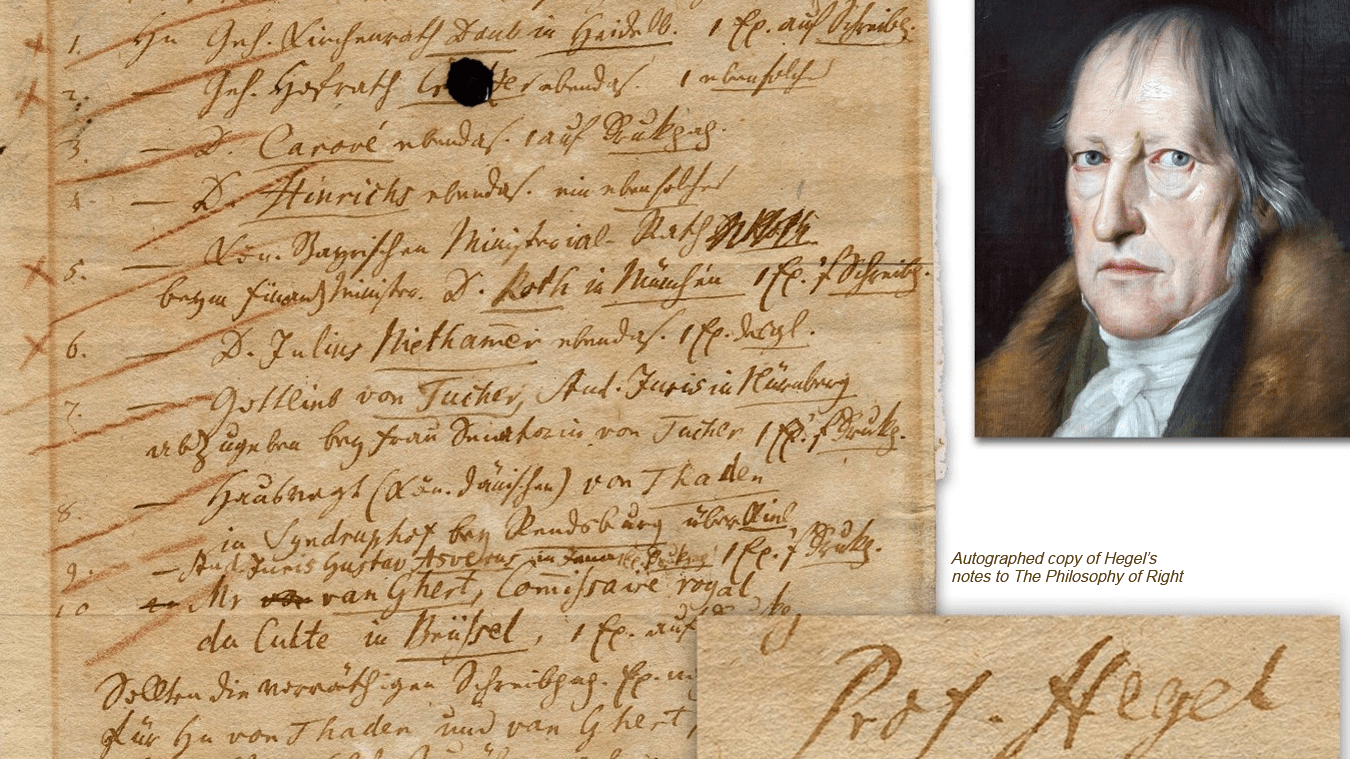 1. Hn Geh. Kirchenrath Daub in Heidelb. 1 Ex. auf Schreibp.
2. — Geh. Hofrath ebendas. 1 ebensolches
3. — D. Carové ebendas. 1 auf Drukpap.
4. — D. Hinrichs ebendas. ein ebensolches
5. — Kön. Bayrischen Ministerial-Rath
beym Finanz Minister. D. Roth in München 1 Ex. f Schreibp.
6. — D. Julius Niethamer ebendas. 1 Ex. desgl.
7. — Gottlieb von Tucher, Stud. Juris in Nürnberg
abzugeben bey Frau Senatorin von Tucher 1 Ex. f Drukp.
8. — Hausvogt (Kön. dänischen) von Thaden
in Syndruphof bey Rendsburg über Kiel 1 Ex. f Drukp.
9. — Stud. Juris Gustav Asverus in Jena
10 Mr van Ghert, Comissaire royal
du Culte in Brüssel, 1 Ex. auf
Sollten die vorräthigen Schreibpap. Ex.
für Hn von Thaden und van Ghert
Autographed copy of Hegel's
notes to The Philosophy of Right
Prof. Hegel